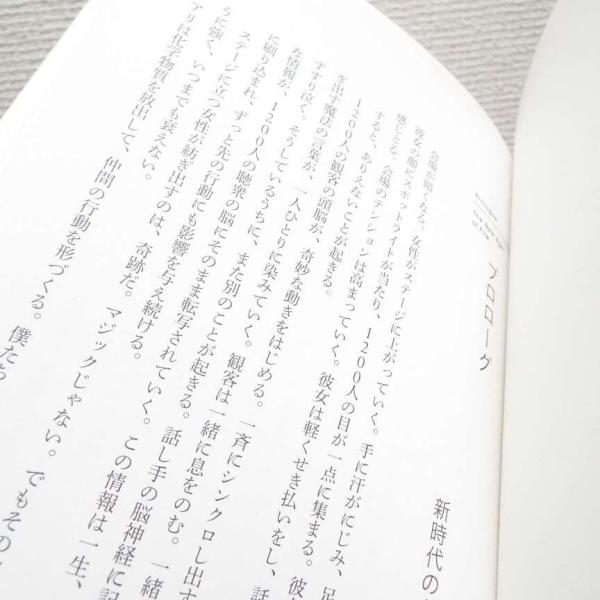 プロローグ
新時代の
会場が暗くなる。女性がステージに上がっていく。手に汗がにじみ、足
彼女の顔にスポットライトが当たり、1200人の目が一点に集まる。彼
感じとる。会場のテンションは高まっていく。彼女は軽くせき払いをし、話
すると、ありえないことが起きる。
1200人の観客の頭脳が、奇妙な動きをはじめる。一斉にシンクロし出す
を出す魔法の言葉が、一人ひとりに染みていく。観客は一緒に息をのむ。一緒
すすり泣く。そうしているうちに、また別のことが起きる。話し手の脳神経に記
な情報が、1200人の聴衆の脳にそのまま転写されていく。この情報は一生、
に刷り込まれ、ずっと先の行動にも影響を与え続ける。
ステージに立つ女性が紡ぎ出すのは、奇跡だ。マジックじゃない。でもその
うに強く、いつまでも衰えない。
アリは化学物質を放出して、仲間の行動を形づくる。僕たち